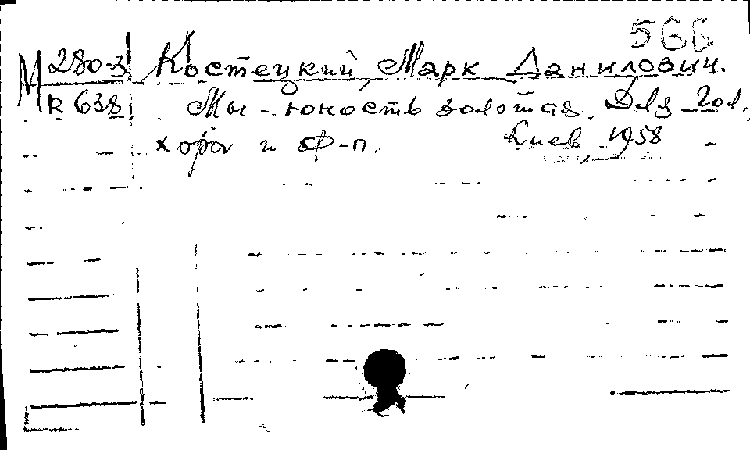 566
М 280-3 Костецкий, Марк Данилович.
R 638 Мы - юность золотая. Для гол.
хора и ф-п. Киев 1958